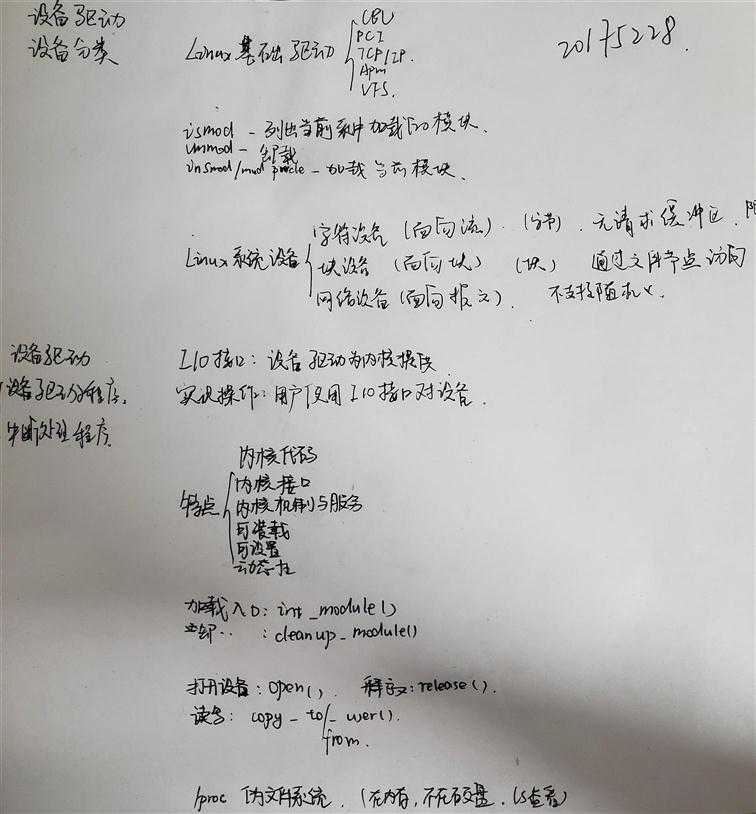 设备驱动
设备分类
20175228.
Linux基础驱动
CPU
PCI
TCP/IP.
Apm
VFS.
ismod - 列出当前系中加载的模块.
ummod - 卸载
insmod/mod - 加载当前模块.
Linux系统设备
字符设备(面向流). (字节). 无请求缓冲区.
块设备(面向块) (块) 通过文件节点访问
网络设备(面向报文). 不支持随机
设备驱动
设备驱动的程序.
中断处理程序.
I/O接口: 设备驱动为内核提供
实现操作: 用户使用I/O接口对设备.
特点
内核代码
内核接口
内核机制与服务
可装载
可设置
动态性
加载入口: int_module()
卸.. : cleanup_module()
打开设备: open(). 释放: release().
读写: copy_to/_user().
from.
/proc 伪文件系统. (在内存,不在硬盘. ls查看)